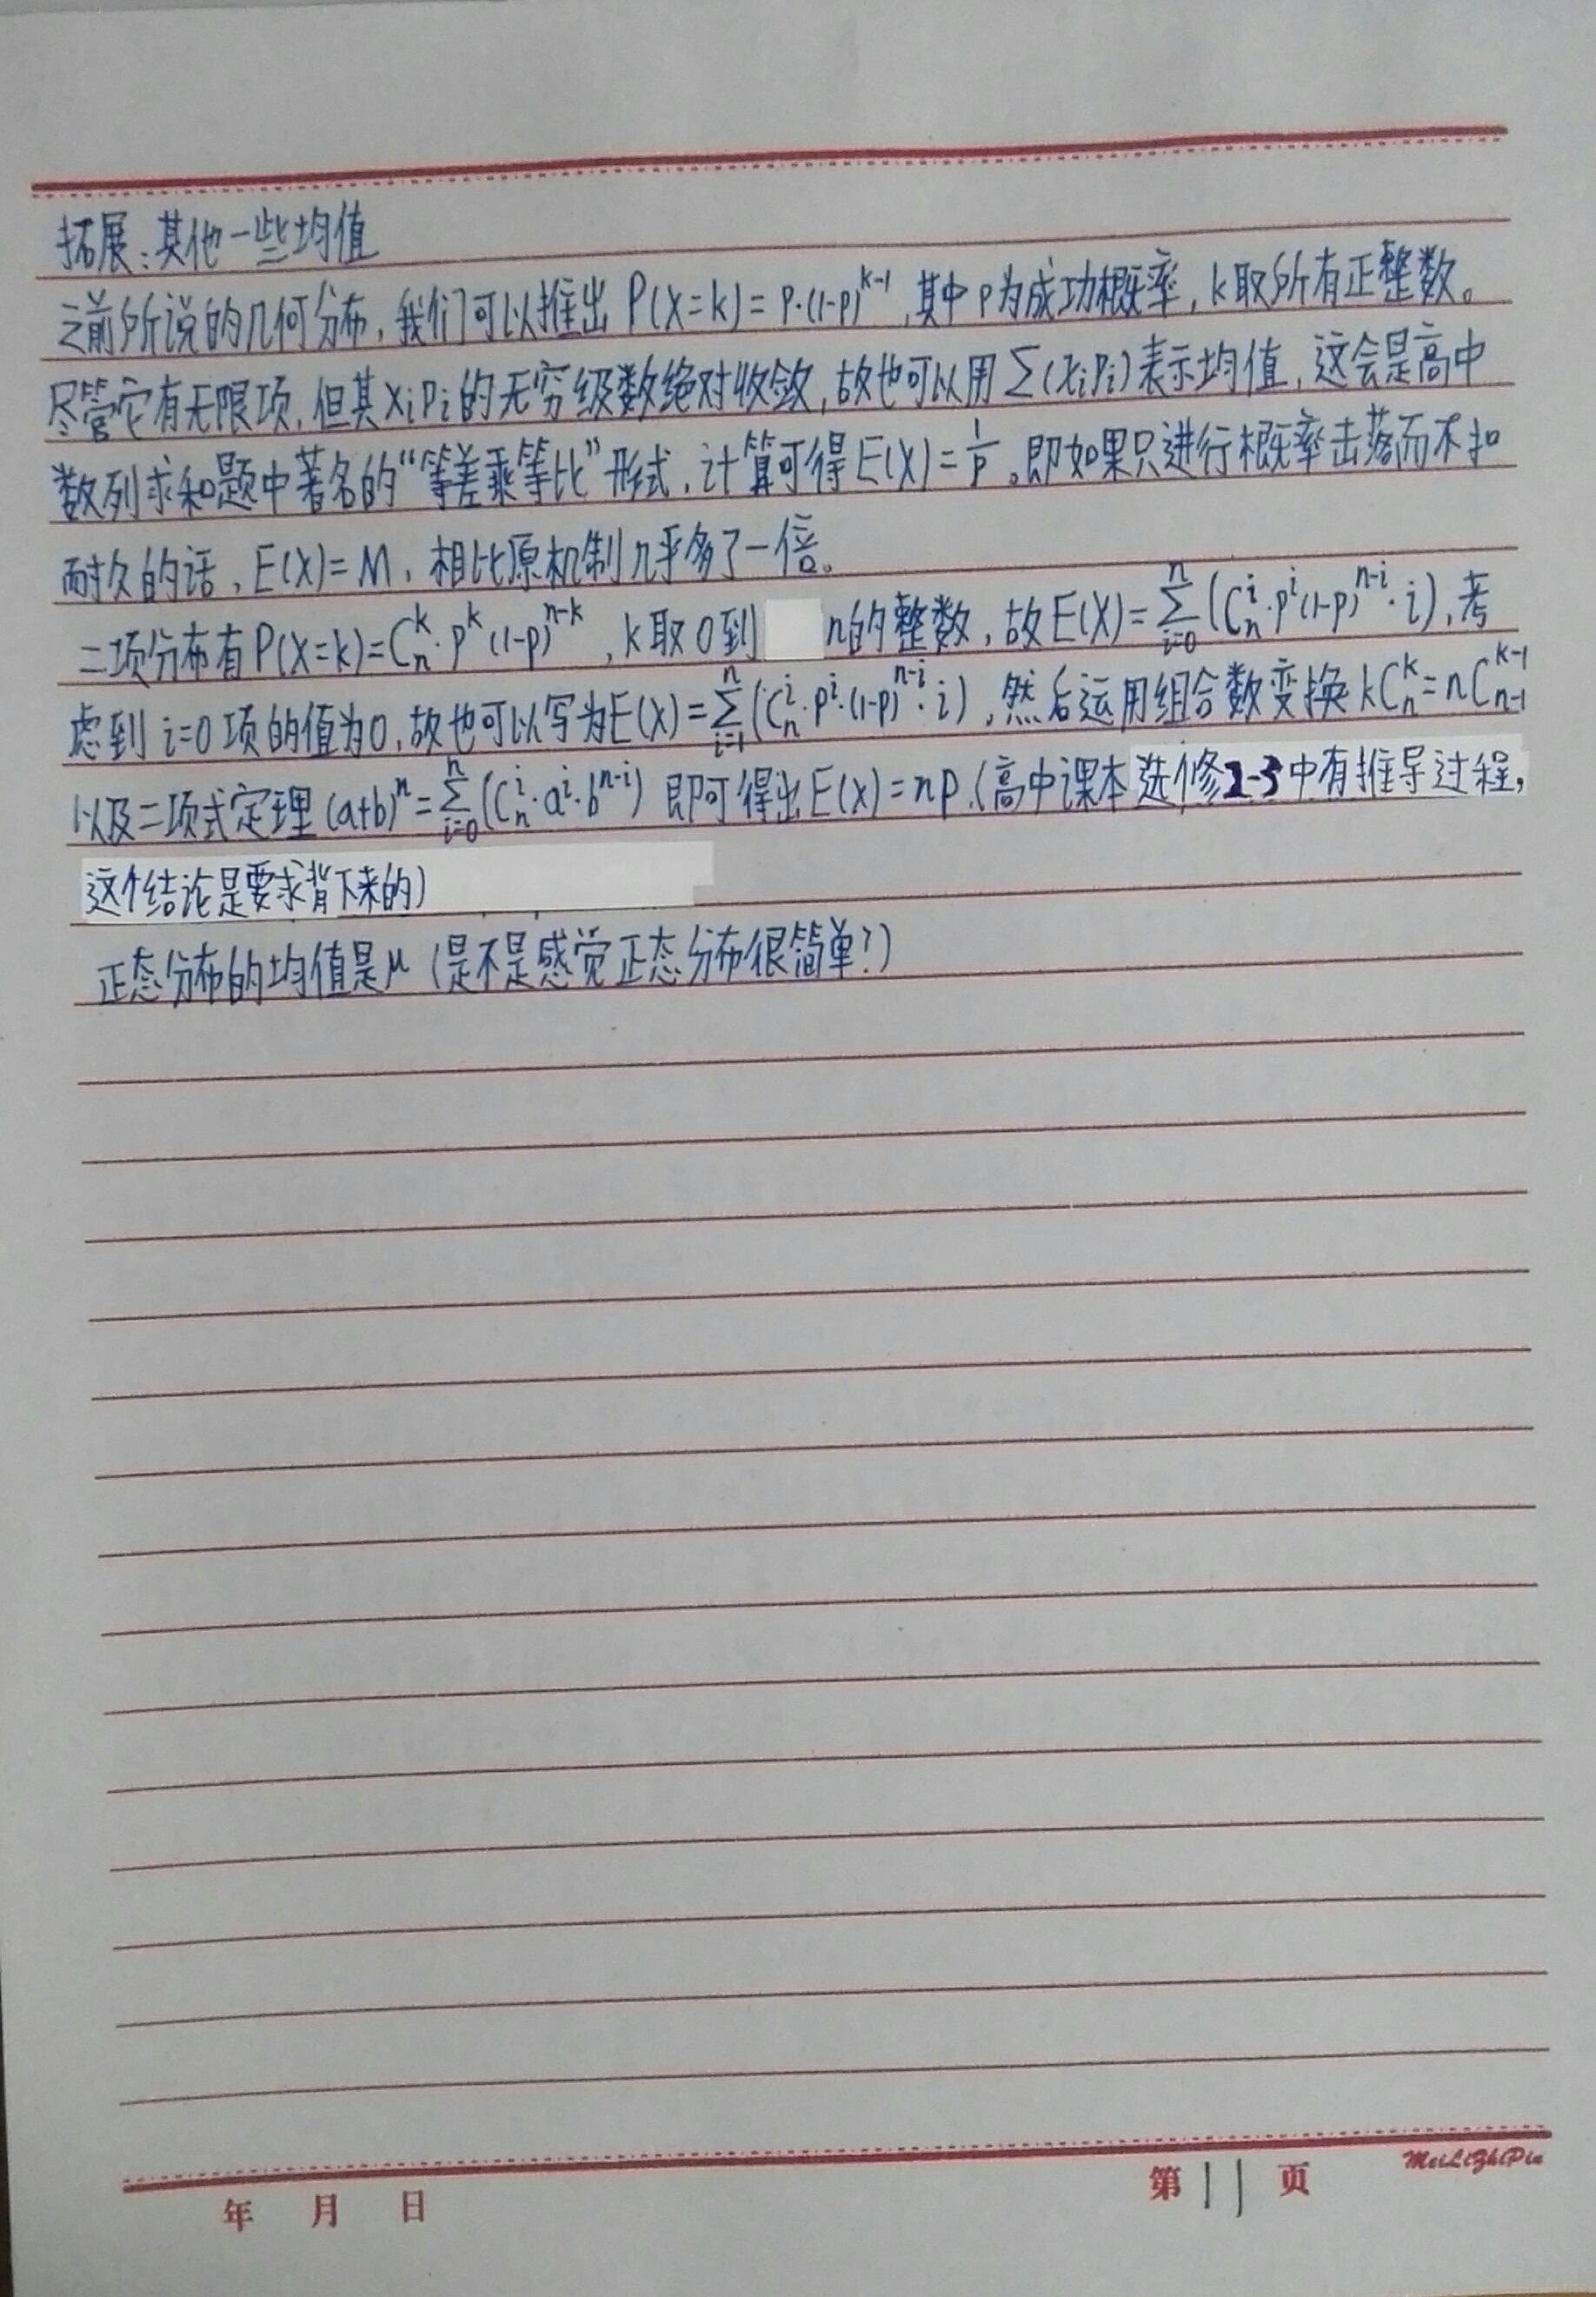 拓展：其他一些均值
之前所说的几何分布，我们可以推出 P(X=k)=p·(1-p)^{k-1}，其中p为成功概率，k取所有正整数。
尽管它有无限项，但其xᵢpᵢ的无穷级数绝对收敛，故也可以用Σ(xᵢpᵢ)表示均值，这会是高中
数列求和题中著名的“等差乘等比”形式，计算可得E(X)=1/p。即如果只进行概率击落而不扣
耐久的话，E(X)=M，相比原机制几乎多了一倍。
二项分布有P(X=k)=C_n^k·p^k(1-p)^{n-k}，k取0到n的整数，故E(X)=∑_{i=0}^{n}(C_n^i·p^i(1-p)^{n-i}·i)，考
虑到i=0项的值为0，故也可以写为E(X)=∑_{i=1}^{n}(C_n^i·p^i·(1-p)^{n-i}·i)，然后运用组合数变换kC_n^k=nC_{n-1}^{k-1}
以及二项式定理(a+b)^n=∑_{i=0}^{n}(C_n^i·a^i·b^{n-i})即可得出E(X)=np.(高中课本选修2-3中有推导过程，
这个结论是要求背下来的)
正态分布的均值是μ(是不是感觉正态分布很简单？)
年 月 日 第11页 MeiLiZhiPin